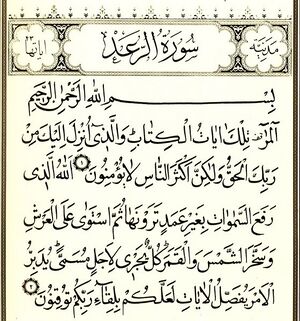 مدنية سورة الرعد اياتها ٤٣
بسم الله الرحمن الرحيم
المر تلك ايات الكتاب والذي انزل اليك من
ربك الحق ولكن اكثر الناس لا يؤمنون ١ الله الذي
رفع السموات بغير عمد ترونها ثم استوى على العرش
وسخر الشمس والقمر كل يجري لاجل مسمى يدبر
الامر يفصل الايات لعلكم بلقاء ربكم توقنون ٢